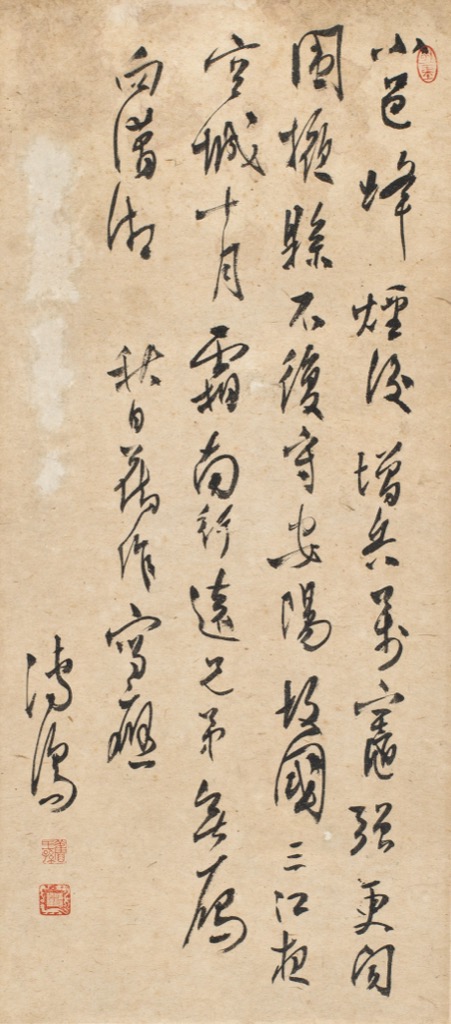 小邑烽煙後增兵萬竈强更聞
圍縣不復守安陽故國三江夜
空城十月霜南行遠兄弟無雁
向瀟湘 秋日舊作寫應
溥儒